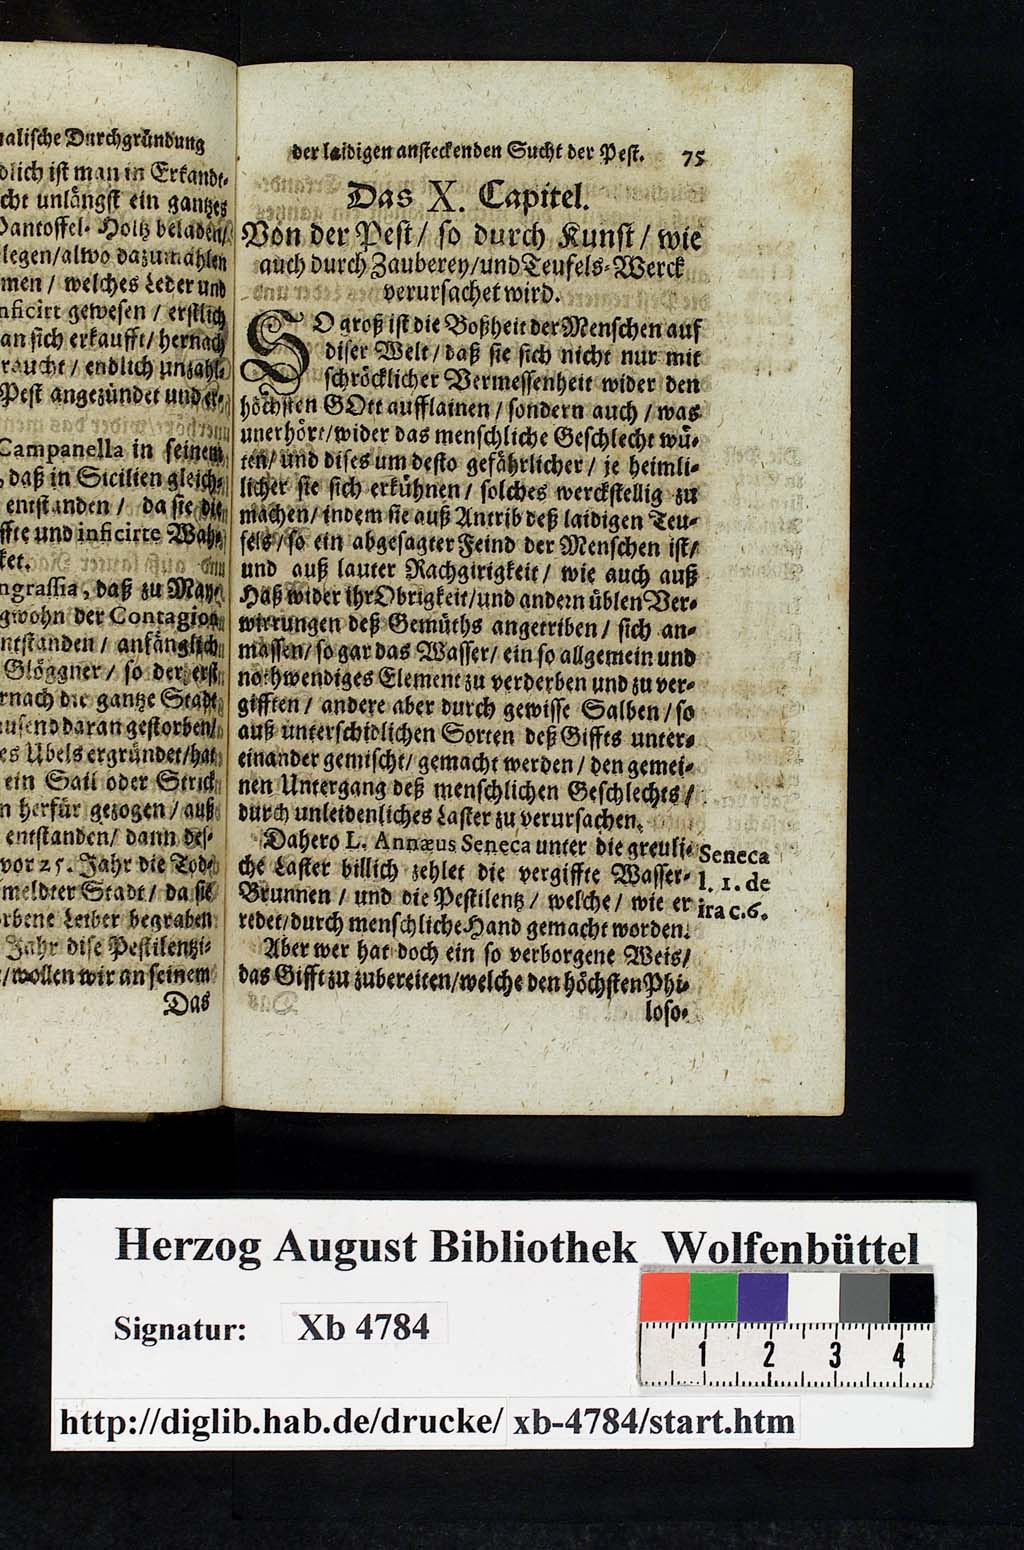 nalische Durchgründung
dlich ist man in Erkandt-
cht unlängst ein gantzes
Pantoffel-Holtz beladen/
legen/alwo dazumahlen
men / welches Leder und
nficirt gewesen / erstlich
an sich erkaufft/ hernach
raucht / endlich unzahl-
Pest angezündet und er-
Campanella in seinem
, daß in Sicilien gleich-
entstanden / da sie die
ffte und inficirte Wah-
ket.
ngrassia, daß zu May-
gwohn der Contagion
ntstanden / anfänglich
Glöggner / so der erst
rnach die gantze Stadt
ausend daran gestorben/
es Ubels ergründet/hat
ein Sail oder Strick
n herfür gezogen / auß
entstanden/ dann des-
vor 25. Jahr die Tod-
meldter Stadt / da sie
orbene Leiber begraben
Jahr dise Pestilentzi-
/wollen wir an seinem
Das
der laidigen ansteckenden Sucht der Pest. 75
Das X. Capitel.
Von der Pest / so durch Kunst / wie
auch durch Zauberey/und Teufels-Werck
verursachet wird.
SO groß ist die Boßheit der Menschen auf
diser Welt / daß sie sich nicht nur mit
schröcklicher Vermessenheit wider den
höchsten GOtt aufflainen / sondern auch / was
unerhört/wider das menschliche Geschlecht wü-
ten/ und dises um desto gefährlicher / je heimli-
licher sie sich erkühnen / solches werckstellig zu
machen/ indem sie auß Antrib deß laidigen Teu-
fels / so ein abgesagter Feind der Menschen ist/
und auß lauter Rachgirigkeit / wie auch auß
Haß wider ihr Obrigkeit/und andern üblen Ver-
wirrungen deß Gemüths angetriben / sich an-
massen/ so gar das Wasser/ ein so allgemein und
nothwendiges Element zu verderben und zu ver-
gifften / andere aber durch gewisse Salben / so
auß unterschidlichen Sorten deß Giffts unter-
einander gemischt/ gemacht werden / den gemei-
nen Untergang deß menschlichen Geschlechts /
durch unleidenliches Laster zu verursachen.
Dahero L. Annæus Seneca unter die greuli-
che Laster billich zehlet die vergiffte Wasser-
Brunnen / und die Pestilentz / welche / wie er
redet/durch menschliche Hand gemacht worden.
Seneca
l. 1. de
ira c. 6.
Aber wer hat doch ein so verborgene Weis/
das Gifft zu zubereiten/welche den höchsten Phi-
loso-
Herzog August Bibliothek Wolfenbüttel
Signatur: Xb 4784
1 2 3 4
http://diglib.hab.de/drucke/ xb-4784/start.htm